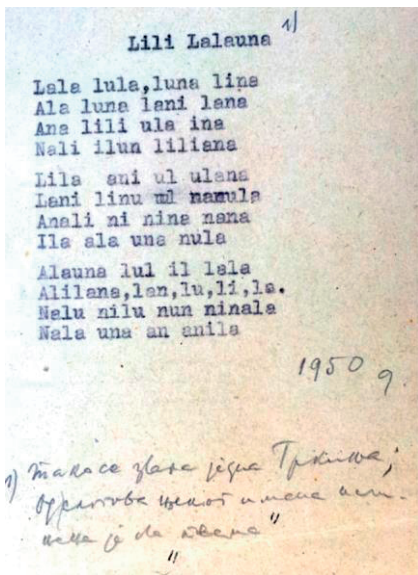 Lili Lalauna 1)
Lala lula,luna lina
Ala luna lani lana
Ana lili ula ina
Nali ilun liliana
Lila ani ul ulana
Lani linu ml namula
Anali ni nina nana
Ila ala una nula
Alauna lul il lala
Alilana,lan,lu,li,la.
Nalu nilu nun ninala
Nala una an anila
1950 g.
1) Тако се звала једна Туркиња;
од слова њеног имена
је ова песма"
"